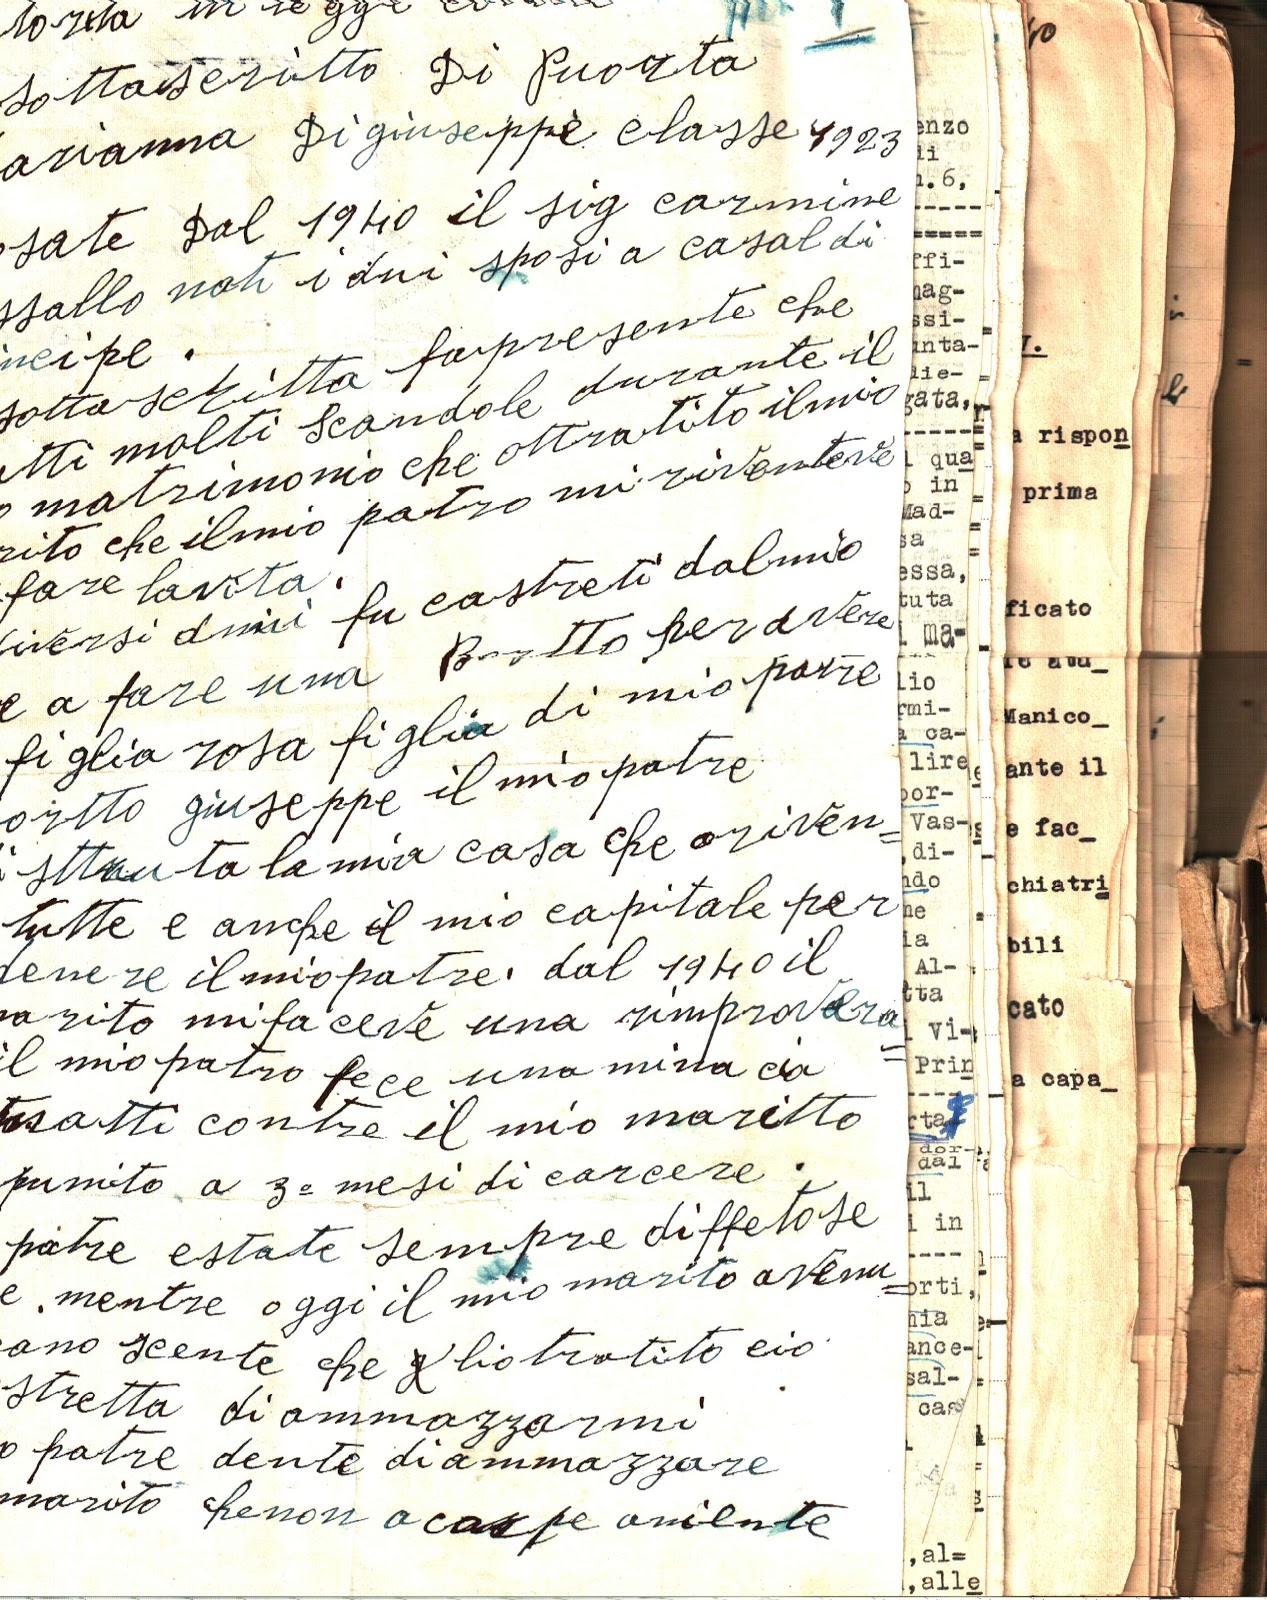 torita in legge
sottascritto Di Puorta
arianna Di giuseppe classe 1923
osate Dal 1940 il sig carmine
ssallo nati i dui sposi a casal di
incipe.
sottascritta fa presente che
atti molti scandole durante il
o matrimonio che ottratito il mio
rito che il mio patro mi
fare lavita.
iversi dmi fu castreti dal mio
e a fare una per avere
figlia rosa figlia di mio patre
ortto giuseppe il mio patre
la mia casa che
tutte e anche il mio capitale per
denere il mio patre. dal 1940 il
marito mi faceve una rimprovera
il mio patro fece una minacia
atti contre il mio maritto
punito a 3= mesi di carcere.
patre estate sempre diffetose
e. mentre oggi il mio marito avenu=
cano scente che gliotratito cio
stretta di ammazzarmi
o patre dente di ammazzare
marito che non a ariente
enzo
di
n.6,
ffi-
mag-
ssi-
unta-
lie-
gata,
l qua
o in
Mad-
sa
essa,
tuta
l ma-
lio
rmi-
a ca-
lire
por-
Vas-
,di-
ndo
ne
ia
Al-
tta
Vi-
Prin
rta
dor-
dal
il
i in
orti,
nia
ance-
sal-
cas
,al=
,alle
a rispon
prima
ficato
Manico_
ante il
e fac_
chiatri
bili
cato
a capa_